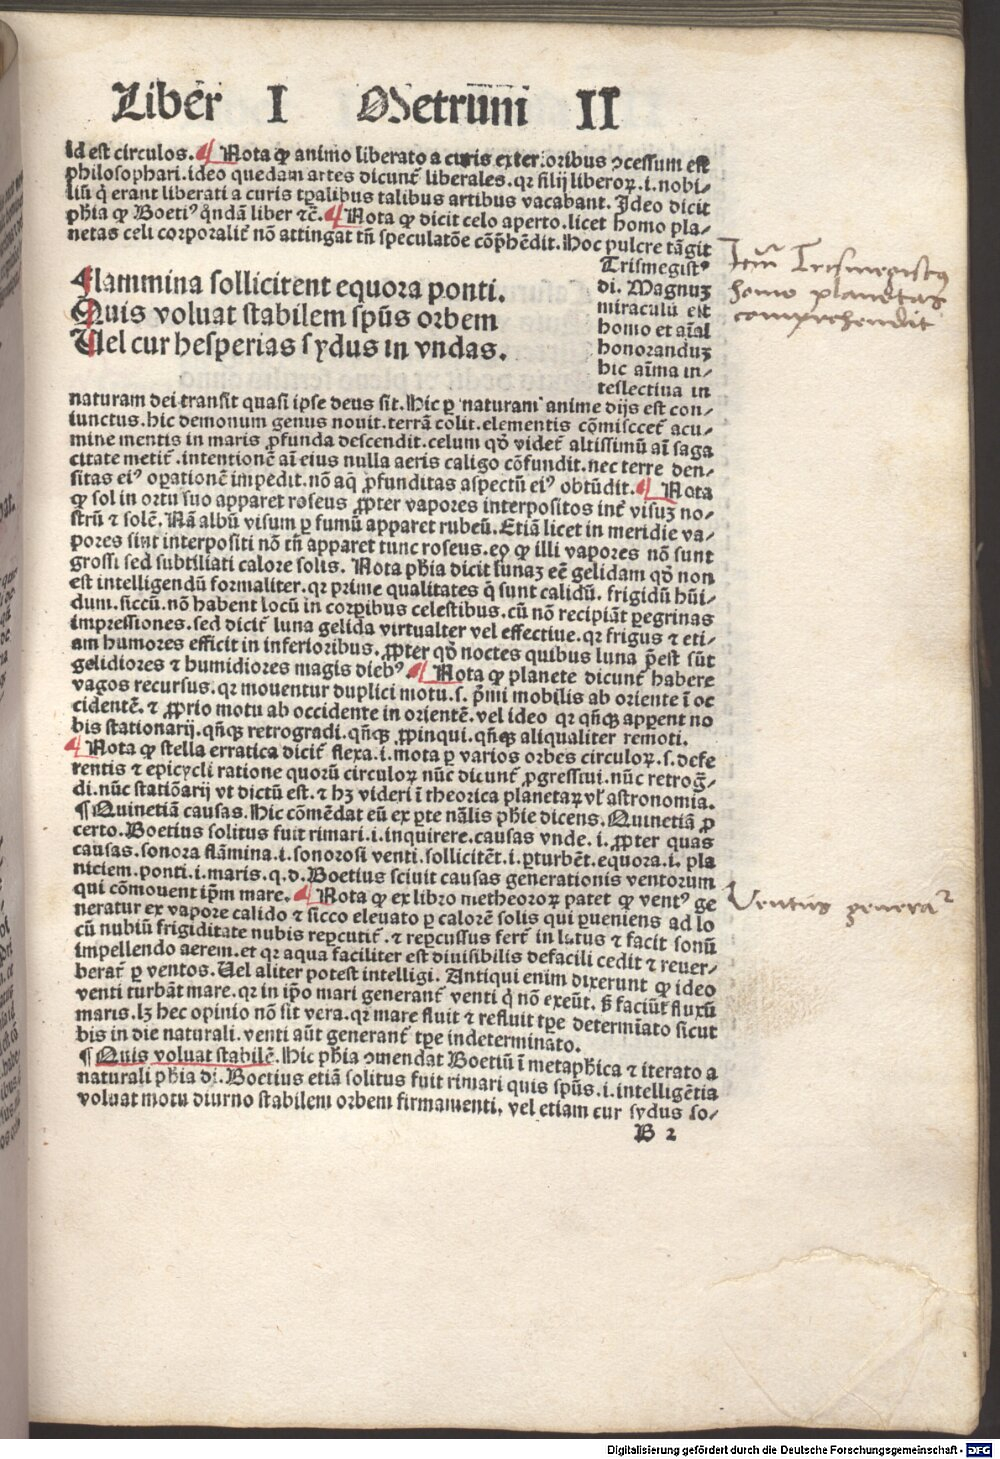 Liber I Metrum II
id est circulos. Nota qꝫ animo liberato a curis exterioribus ↄcessum est
philosophari. ideo quedam artes dicunt̃ liberales. qꝛ filij liberoꝝ. i. nobi⸗
liũ q̃ erant liberati a curis tꝑalibus talibus artibus vacabant. Ideo dicit
phia ꝙ Boetiꝰ q̃ndã liber ⁊c̃. Nota ꝙ dicit celo aperto. licet homo pla⸗
netas celi corporalit̃ nõ attingat tñ speculatõe cõp̃hẽdit. Hoc pulcre tãgit
Trismegistꝰ
di. Magnuꝫ
miraculũ est
homo et aĩal
honoranduꝫ
hic aĩma in⸗
tellectiua in
Flammina sollicitent equora ponti.
Quis voluat stabilem spũs orbem
Uel cur hesperias sydus in vndas.
naturam dei transit quasi ipse deus sit. Hic ꝑ naturam anime dijs est con⸗
iunctus. hic demonum genus nouit. terrã colit. elementis cõmiscet̃ acu⸗
mine mentis in maris ꝓfunda descendit. celum qd̃ videt̃ altissimũ aĩ saga
citate metit̃. intentionẽ aĩ eius nulla aeris caligo cõfundit. nec terre den⸗
sitas eiꝰ oꝑationẽ impedit. nõ aq̃ ꝓfunditas aspectũ eiꝰ obtũdit. Nota
ꝙ sol in ortu suo apparet roseus ꝓpter vapores interpositos int̃ visuꝫ no⸗
strũ ⁊ solẽ. Nã albũ visum ꝑ fumũ apparet rubeũ. Etiã licet in meridie va⸗
pores sint interpositi nõ tñ apparet tunc roseus. eo ꝙ illi vapores nõ sunt
grossi sed subtiliati calore solis. Nota phia dicit lunaꝫ eẽ gelidam qd̃ non
est intelligendũ formaliter. qꝛ prime qualitates q̃ sunt calidũ. frigidũ hũi⸗
dum. siccũ. nõ habent locũ in corꝑibus celestibus. cũ nõ recipiãt ꝑegrinas
impressiones. sed dicit̃ luna gelida virtualter vel effectiue. qꝛ frigus ⁊ eti⸗
am humores efficit in inferioribus. ꝓpter qd̃ noctes quibus luna p̃est sũt
gelidiores ⁊ humidiores magis diebꝰ. Nota ꝙ planete dicunt̃ habere
vagos recursus. qꝛ mouentur duplici motu. s. p̃mi mobilis ab oriente ĩ oc
cidentẽ. ⁊ ꝓprio motu ab occidente in orientẽ. vel ideo qꝛ qñqꝫ apparent no
bis stationarij. qñqꝫ retrogradi. qñqꝫ ꝓpinqui. qñqꝫ aliqualiter remoti.
Nota ꝙ stella erratica dicit̃ flexa. i. mota ꝑ varios orbes circuloꝝ. s. defe
rentis ⁊ epicycli ratione quorũ circuloꝝ nũc dicunt̃ ꝓgressiui. nũc retrogra⸗
di. nũc statiõarij vt dictũ est. ⁊ hꝫ videri ĩ theorica planetaꝝ vl̃ astronomia.
¶ Quinetiã causas. Hic cõmẽdat eũ ex ꝑte nãlis phie dicens. Quinetiã ꝓ
certo. Boetius solitus fuit rimari. i. inquirere. causas vnde. i. ꝓpter quas
causas. sonora flãmina. i. sonorosi venti. sollicitẽt. i. ꝑturbẽt. equora. i. pla
niciem. ponti. i. maris. q. d. Boetius sciuit causas generationis ventorum
qui cõmouent ipm̃ mare. Nota ꝙ ex libro metheoroꝝ patet ꝙ ventꝰ ge
neratur ex vapore calido ⁊ sicco eleuato ꝑ calorẽ solis qui ꝑueniens ad lo
cũ nubiũ frigiditate nubis reꝑcutit̃. ⁊ reꝑcussus fert̃ in latus ⁊ facit sonũ
impellendo aerem. et qꝛ aqua faciliter est diuisibilis defacili cedit ⁊ reuer⸗
berat̃ ꝑ ventos. Uel aliter potest intelligi. Antiqui enim dixerunt ꝙ ideo
venti turbãt mare. qꝛ in ipo mari generant̃ venti q̃ nõ exeũt. sꝫ faciũt fluxũ
maris. lꝫ hec opinio nõ sit vera. qꝛ mare fluit ⁊ refluit tꝑe determĩato sicut
bis in die naturali. venti aũt generant̃ tꝑe indeterminato.
¶ Quis voluat stabilẽ. Hic phia ↄmendat Boetiũ ĩ metaphica ⁊ iterato a
naturali phia di. Boetius etiã solitus fuit rimari quis spũs. i. intelligẽtia
voluat motu diurno stabilem orbem firmamenti, vel etiam cur sydus so⸗
B 2
Trismegistus
homo planetas
comprehendit
Ventus genera
Digitalisierung gefördert durch die Deutsche Forschungsgemeinschaft - DFG